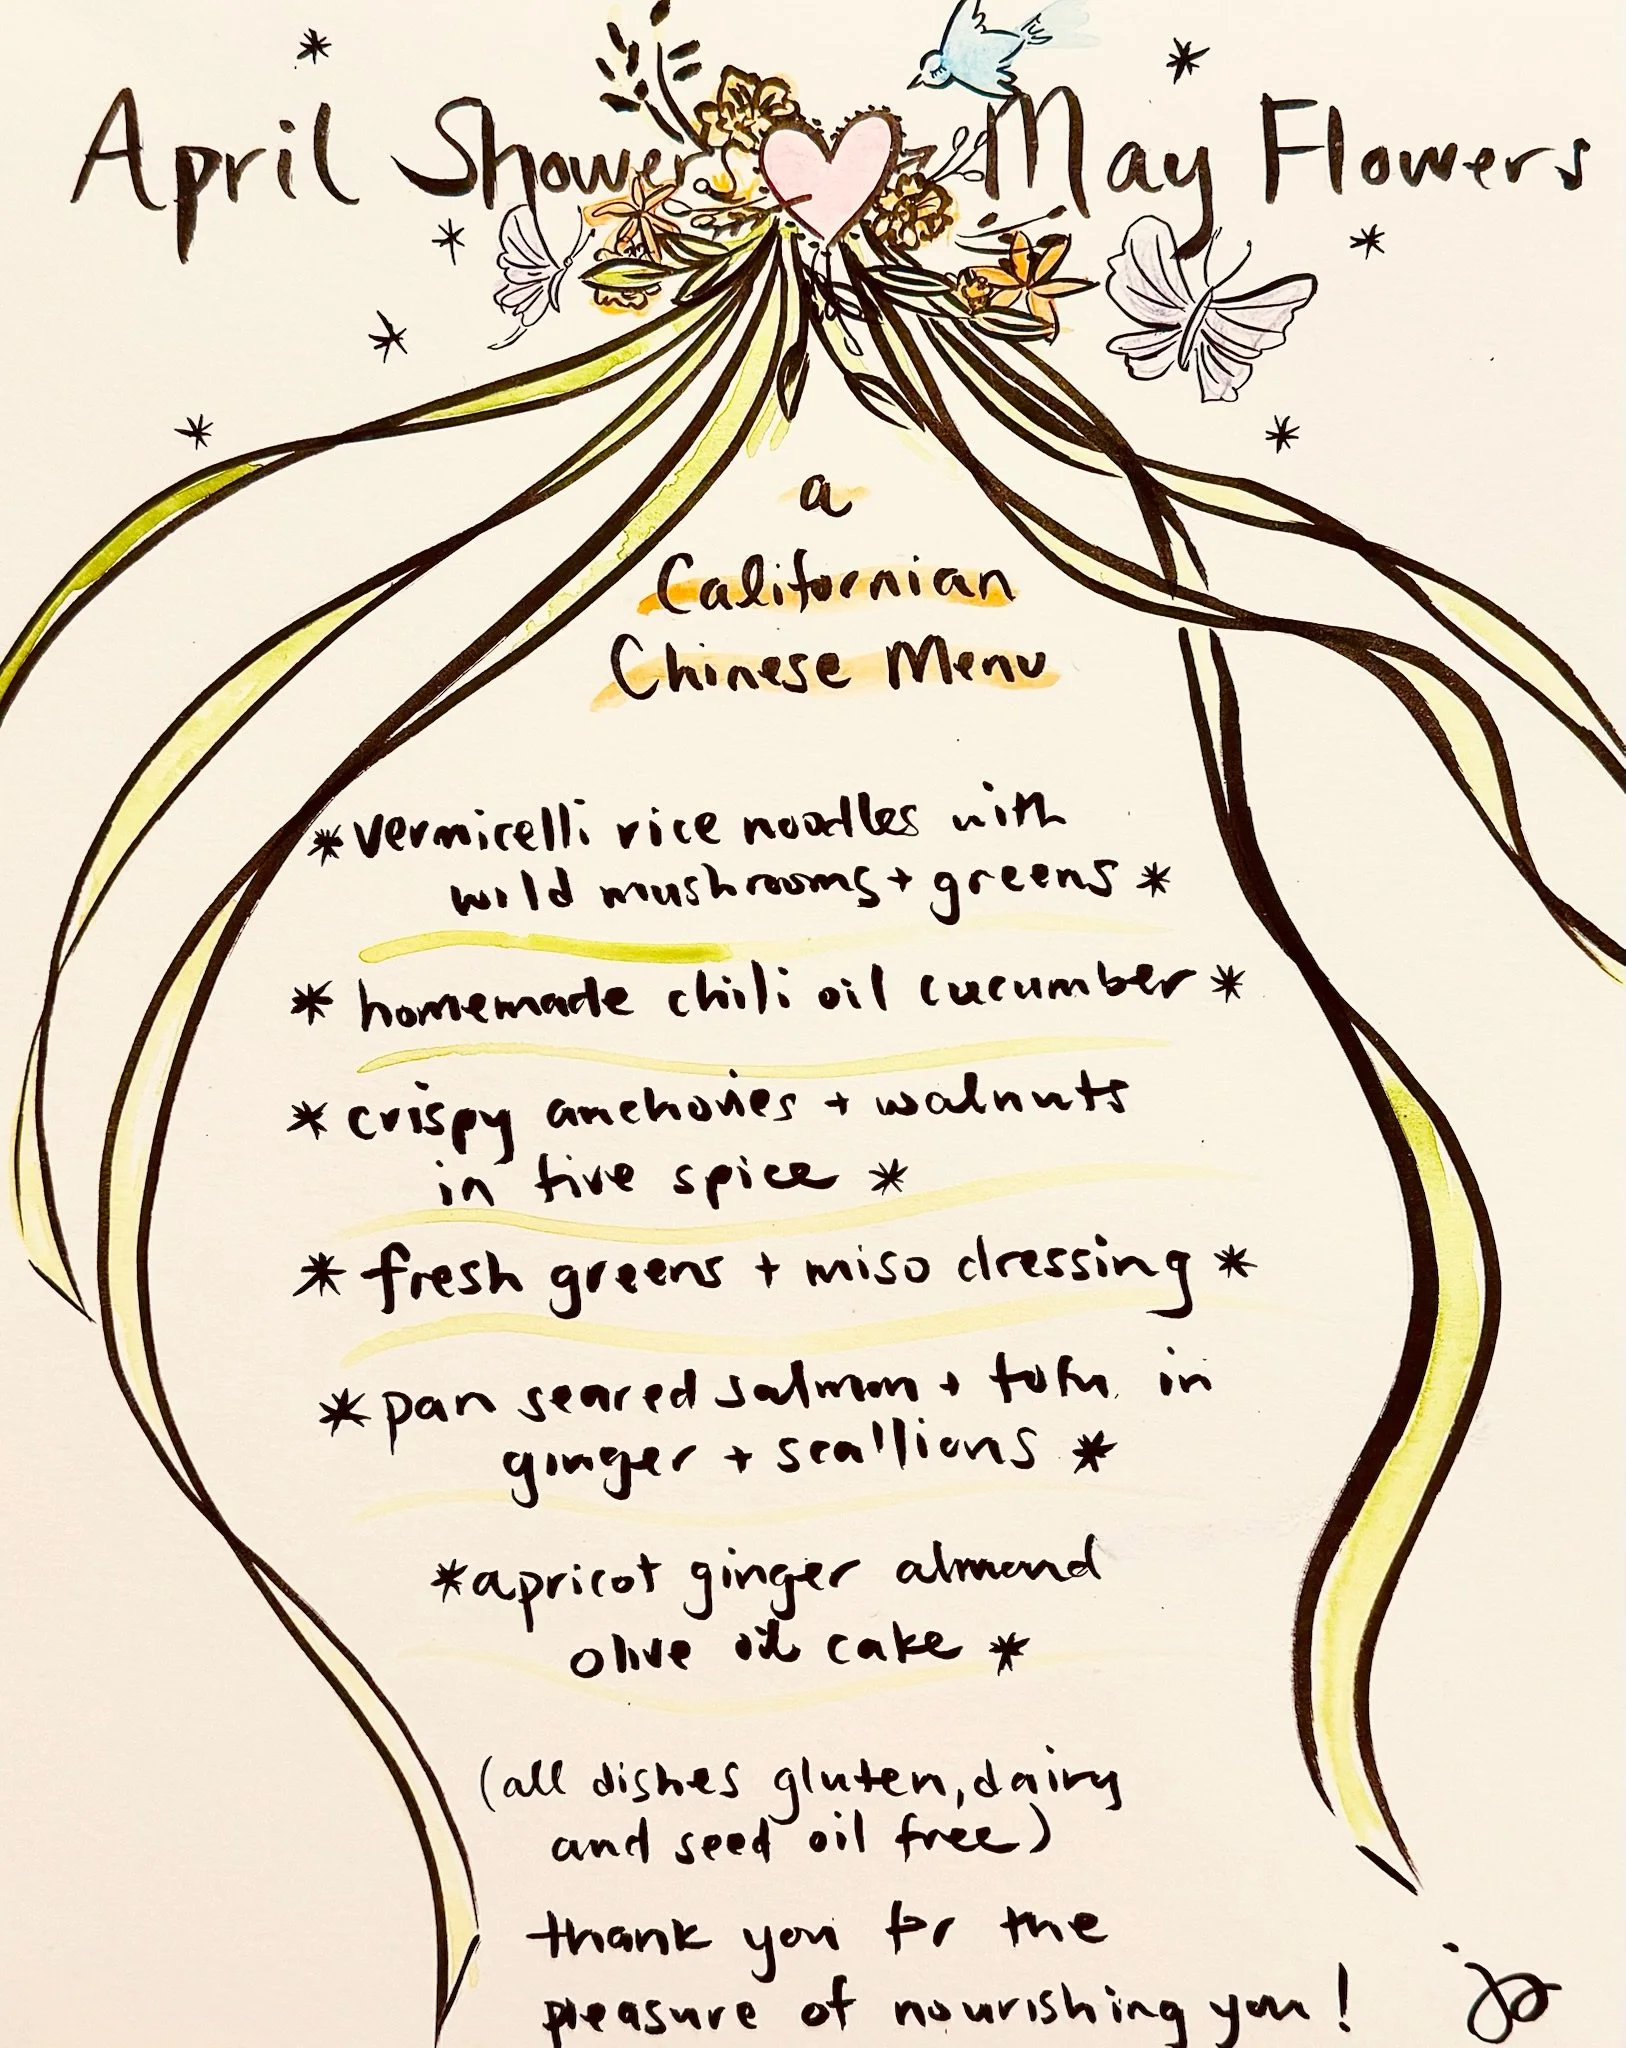 April Showers May Flowers
a
Californian
Chinese Menu
*vermicelli rice noodles with
wild mushrooms + greens *
* homemade chili oil cucumber *
* crispy anchovies + walnuts
in five spice *
* fresh greens + miso dressing *
* pan seared salmon + tofu in
ginger + scallions *
*apricot ginger almond
olive oil cake *
(all dishes gluten, dairy
and seed oil free)
thank you for the
pleasure of nourishing you!